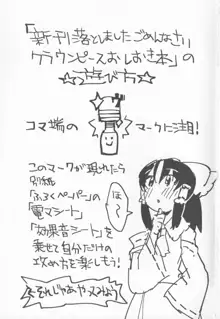 「新刊落としましたごめんなさい
クラウンピースおしおき本」の
☆遊び方☆
コマ端の
マークに注目!
このマークが現れたら
別紙
「ふろくペーパー」の
「電マシート」
「効果音シート」を
乗せて自分だけの
攻め方を楽しもう!
ほ〜